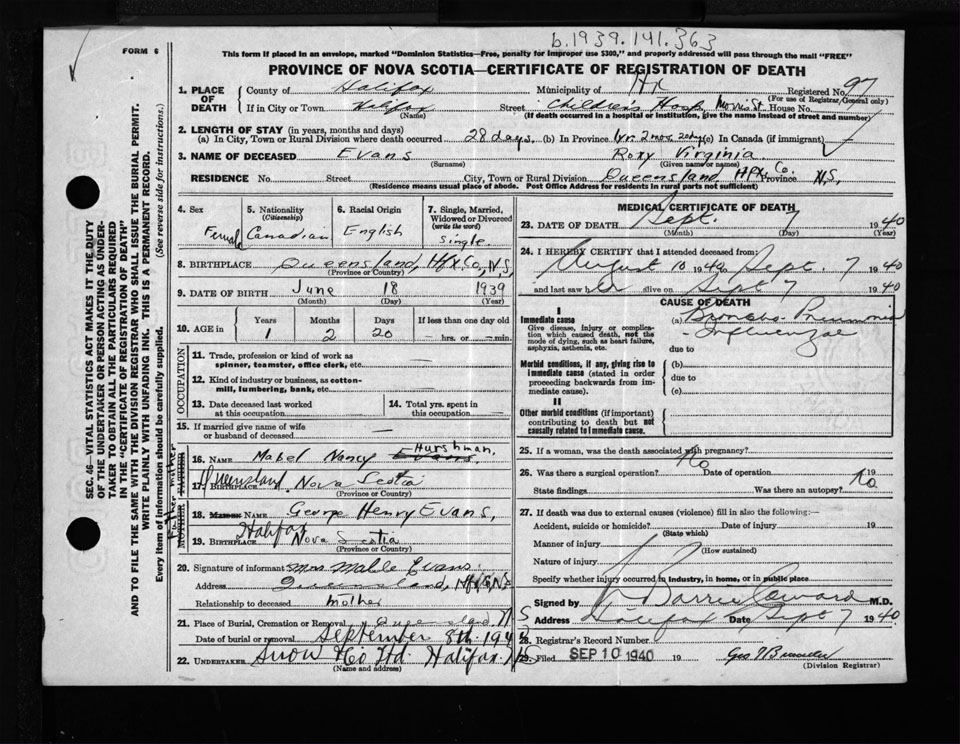 b.1939.141.363
FORM 6
This form if placed in an envelope, marked "Dominion Statistics—Free, penalty for improper use $300," and properly addressed will pass through the mail "FREE"
PROVINCE OF NOVA SCOTIA—CERTIFICATE OF REGISTRATION OF DEATH
SEC. 46—VITAL STATISTICS ACT MAKES IT THE DUTY
OF THE UNDERTAKER OR PERSON ACTING AS UNDER-
TAKER TO OBTAIN ALL THE PARTICULARS REQUIRED
IN THE "CERTIFICATE OF REGISTRATION OF DEATH"
AND TO FILE THE SAME WITH THE DIVISION REGISTRAR WHO SHALL ISSUE THE BURIAL PERMIT.
WRITE PLAINLY WITH UNFADING INK. THIS IS A PERMANENT RECORD.
Every item of information should be carefully supplied. (See reverse side for instructions.)
1. PLACE OF DEATH County of Halifax Municipality of Hx Registered No. 97
(For use of Registrar General only)
If in City or Town Halifax Street Children's Hosp Morris St. House No.
(Name) (If death occurred in a hospital or institution, give the name instead of street and number)
2. LENGTH OF STAY (in years, months and days)
(a) In City, Town or Rural Division where death occurred 28 days (b) In Province 1yr. 2 mos. 20dy (c) In Canada (if immigrant)
3. NAME OF DECEASED Evans Roxy Virginia
(Surname) (Given name or names)
RESIDENCE No. Street City, Town or Rural Division Queensland, Hfx Co. Province N.S,
(Residence means usual place of abode. Post Office Address for residents in rural parts not sufficient)
4. Sex Female
5. Nationality (Citizenship) Canadian
6. Racial Origin English
7. Single, Married, Widowed or Divorced (write the word) Single.
8. BIRTHPLACE Queensland, Hfx Co, N,S,
(Province or Country)
9. DATE OF BIRTH June 18 1939
(Month) (Day) (Year)
10. AGE in Years Months Days If less than one day old
1 2 20 hrs. or min.
OCCUPATION
11. Trade, profession or kind of work as spinner, teamster, office clerk, etc.
12. Kind of industry or business, as cotton-mill, lumbering, bank, etc.
13. Date deceased last worked at this occupation
14. Total yrs. spent in this occupation
15. If married give name of wife or husband of deceased
FATHER Mother
16. NAME Mabel Nancy Evans Hurshman,
17. BIRTHPLACE Queensland, Nova Scotia
(Province or Country)
MOTHER Father
18. Maiden NAME George Henry Evans,
19. BIRTHPLACE Halifax Nova Scotia
(Province or Country)
20. Signature of informant Mrs Mable Evans
Address Queensland, Hfx Co, N.S.
Relationship to deceased mother
21. Place of Burial, Cremation or Removal Queensland N S
Date of burial or removal September 8th 194
22. UNDERTAKER Snow & Co Ltd. Halifax. N S
(Name and address)
MEDICAL CERTIFICATE OF DEATH
23. DATE OF DEATH Sept. 7 1940
(Month) (Day) (Year)
24. I HEREBY CERTIFY that I attended deceased from
August 10 1940 to Sept. 7 1940
and last saw her alive on Sept 7 1940
CAUSE OF DEATH
I
Immediate cause (a) Broncho Pneumonia
Influenzae
Give disease, injury or complication which caused death, not the mode of dying, such as heart failure, asphyxia, asthenia, etc.
due to
Morbid conditions, if any, giving rise to immediate cause (stated in order proceeding backwards from immediate cause).
(b)
due to
(c)
II
Other morbid conditions (if important) contributing to death but not causally related to immediate cause.
25. If a woman, was the death associated with pregnancy?
26. Was there surgical operation? No Date of operation 19
State findings Was there an autopsy? No
27. If death was due to external causes (violence) fill in also the following:—
Accident, suicide or homicide? Date of injury 19
(State which)
Manner of injury
(How sustained)
Nature of injury
Specify whether injury occurred in industry, in home, or in public place
Signed by Barrie Coward M.D.
Address Halifax Date Sept 7 1940
28. Registrar's Record Number
29. Filed SEP 10 1940 19
(Division Registrar)